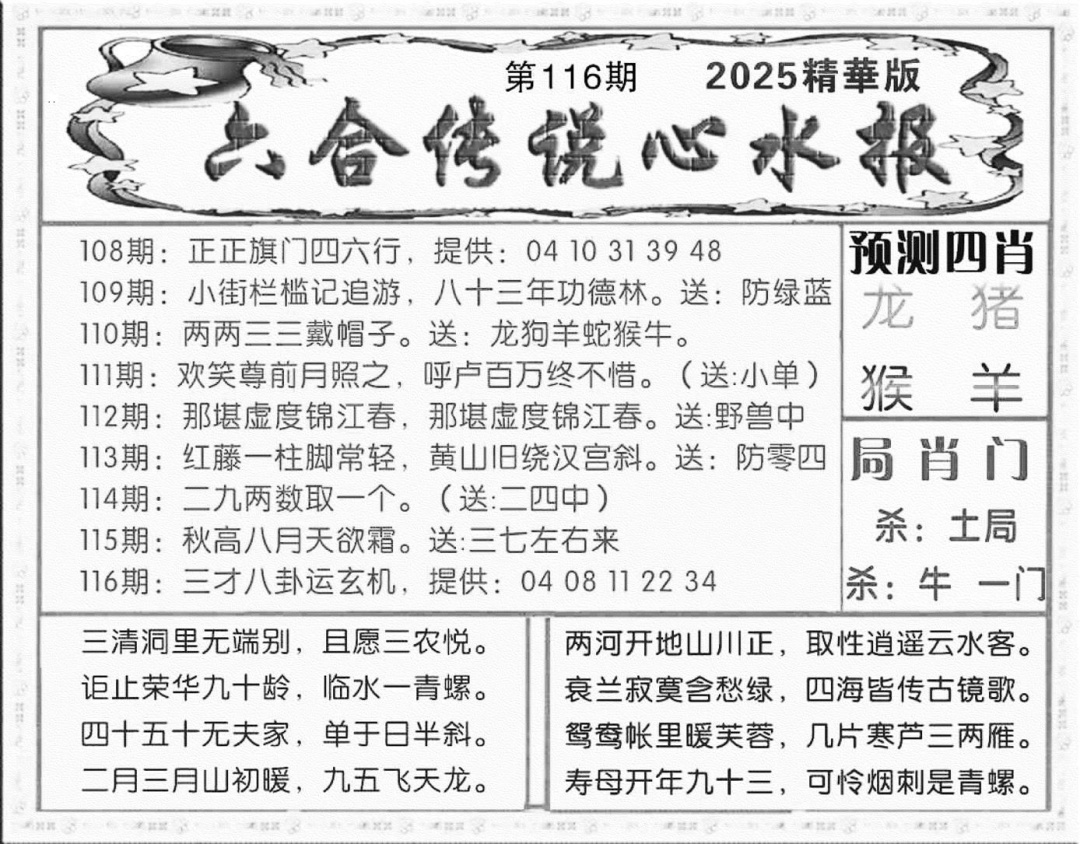 第116期 2025精華版
六合传说心水报
108期：正正旗门四六行，提供：04 10 31 39 48
109期：小街栏槛记追游，八十三年功德林。送：防绿蓝
110期：两两三三戴帽子。送：龙狗羊蛇猴牛。
111期：欢笑尊前月照之，呼卢百万终不惜。（送:小单）
112期：那堪虚度锦江春，那堪虚度锦江春。送:野兽中
113期：红藤一柱脚常轻，黄山旧绕汉宫斜。送：防零四
114期：二九两数取一个。（送:二四中）
115期：秋高八月天欲霜。送:三七左右来
116期：三才八卦运玄机，提供：04 08 11 22 34
预测四肖
龙 猪
猴 羊
局肖门
杀：土局
杀：牛 一门
三清洞里无端别，且愿三农悦。
讵止荣华九十龄，临水一青螺。
四十五十无夫家，单于日半斜。
二月三月山初暖，九五飞天龙。
两河开地山川正，取性逍遥云水客。
衰兰寂寞含愁绿，四海皆传古镜歌。
鸳鸯帐里暖芙蓉，几片寒芦三两雁。
寿母开年九十三，可怜烟刺是青螺。